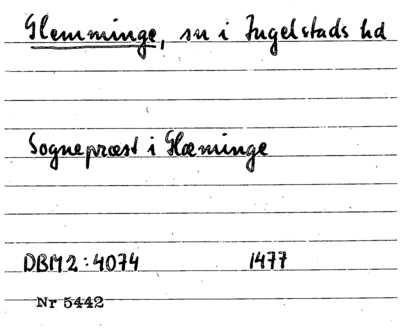 Glemminge, sn i Ingelstads hd
Sognepræst i Glæminge
DBM2:4074 1477
Nr 5442